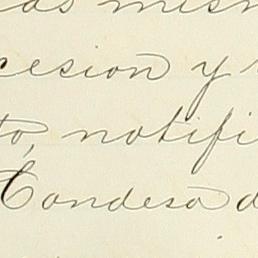 as mism
cesion y
to, notifi
Condesa d